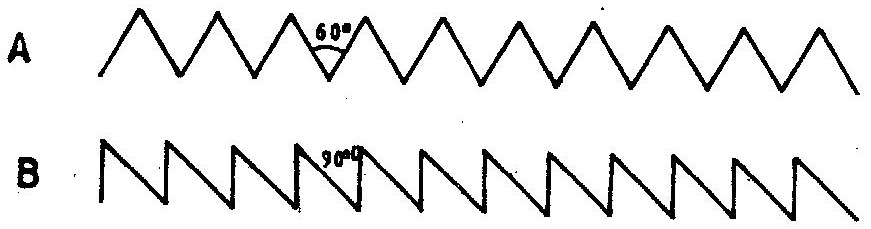 A
60°
B
90°